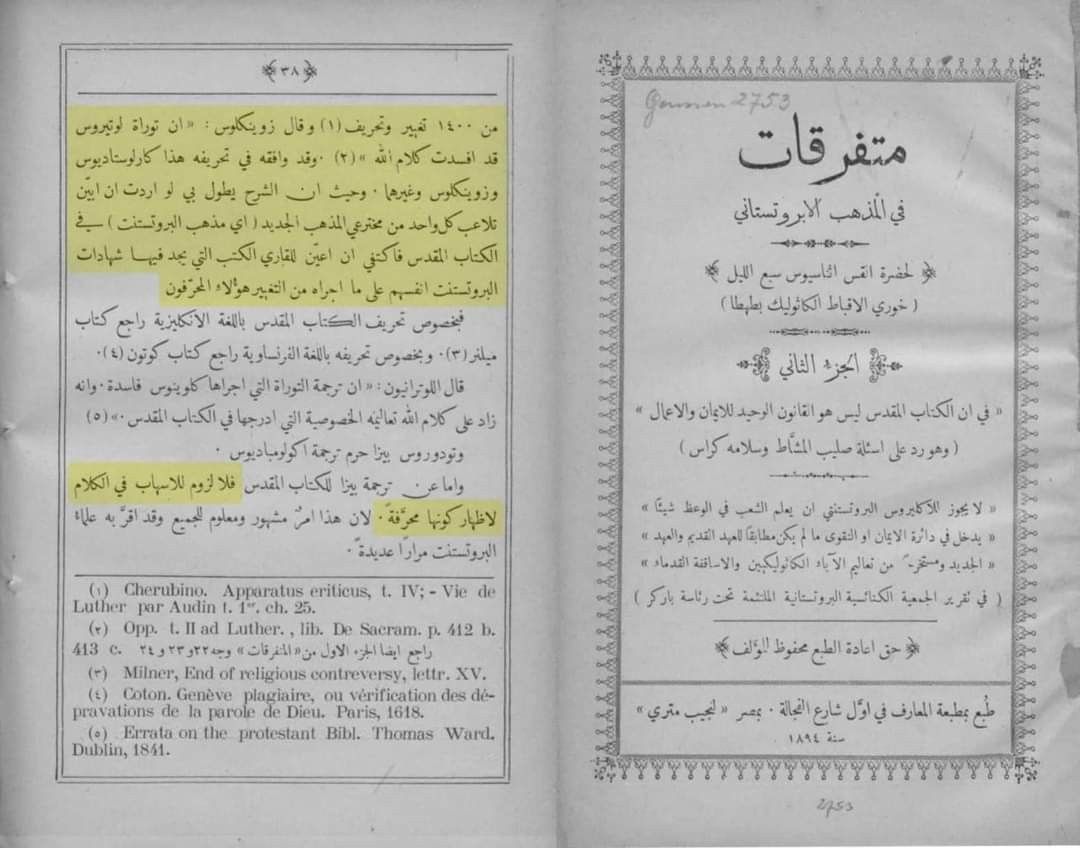 ﴿٣٨﴾
من ١٤٠٠ تغيير وتحريف (١) وقال زوينكلوس : « ان توراة لوتيروس
قد افسدت كلام الله » (٢) . وقد وافقه في تحريفه هذا كارلوستاديوس
وزوينكلوس وغيرهما . وحيث ان الشرح يطول بي لو اردت ان ابيّن
تلاعب كل واحد من مخترعي المذهب الجديد ( اي مذهب البروتستنت ) في
الكتاب المقدس فاكتفي ان اعيّن للقاري الكتب التي يجد فيها شهادات
البروتستنت انفسهم على ما اجراه من التغيير هؤلاء المحرّفون
فبخصوص تحريف الكتاب المقدس باللغة الانكليزية راجع كتاب
ميلنر (٣) . وبخصوص تحريفه باللغة الفرنساوية راجع كتاب كوتون (٤) .
قال اللوترانيون : « ان ترجمة التوراة التي اجراها كلوينوس فاسدة . وانه
زاد على كلام الله تعاليمه الخصوصية التي ادرجها في الكتاب المقدس . » (٥)
وتودوروس بيزا حرم ترجمة اكولومباديوس .
واما عن ترجمة بيزا للكتاب المقدس فلا لزوم للاسهاب في الكلام
لاظهار كونها محرَّفةً . لان هذا امرٌ مشهور ومعلوم للجميع وقد اقرَّ به علماءُ
البروتستنت مرارًا عديدةً .
(١) Cherubino. Apparatus eriticus, t. IV; - Vie de
Luther par Audin t. 1er. ch. 25.
(٢) Opp. t. II ad Luther. , lib. De Sacram. p. 412 b.
413 c. راجع ايضا الجزء الاول من « المتفرقات » وجه ٢٢ و ٢٣ و ٢٤
(٣) Milner, End of religious contreversy, lettr. XV.
(٤) Coton. Genève plagiaire, ou vérification des dé-
pravations de la parole de Dieu. Paris, 1618.
(٥) Errata on the protestant Bibl. Thomas Ward.
Dublin, 1841.
Goussen 2753
متفرقات
في المذهب الابروتستاني
﴿ لحضرة القس اثناسيوس سبع الليل ﴾
( خوري الاقباط الكاثوليك بطهطا )
﴿ الجزء الثاني ﴾
« في ان الكتاب المقدس ليس هو القانون الوحيد للايمان والاعمال »
( وهو رد على اسئلة صليب المشَّاط وسلامه كراس )
« لا يجوز للاكليروس البروتستنتي ان يعلم الشعب في الوعظ شيئًا »
« يدخل في دائرة الايمان او التقوى ما لم يكن مطابقًا للعهد القديم والعهد »
« الجديد ومستخرجًا من تعاليم الآباء الكاثوليكيين والاساقفة القدماء »
( في تقرير الجمعية الكنائسية البروتستانية الملتئمة تحت رئاسة باركر )
﴿ حق اعادة الطبع محفوظ للمؤلف ﴾
طُبع بمطبعة المعارف في اوّل شارع الفجالة . بمصر « لنجيب متري »
سنة ١٨٩٤
2753